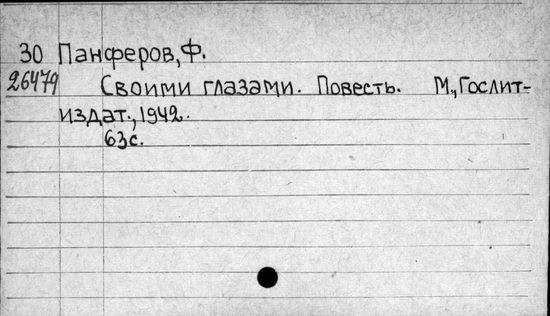 30 Панферов, Ф.
26479 Своими глазами. Повесть. М., Гослит-
издат., 1942.
63с.